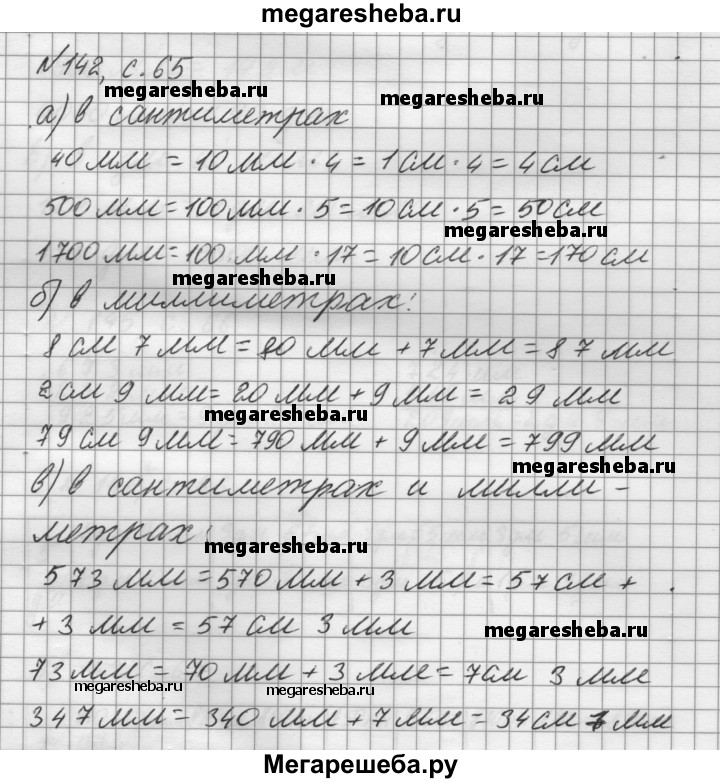 megaresheba.ru
№142, с. 65
megaresheba.ru
megaresheba.ru
а) в сантиметрах
40 мм = 10 мм · 4 = 1 см · 4 = 4 см
500 мм = 100 мм · 5 = 10 см · 5 = 50 см
megaresheba.ru
1700 мм = 100 мм · 17 = 10 см · 17 = 170 см
megaresheba.ru
б) в миллиметрах:
8 см 7 мм = 80 мм + 7 мм = 87 мм
2 см 9 мм = 20 мм + 9 мм = 29 мм
megaresheba.ru
79 см 9 мм = 790 мм + 9 мм = 799 мм
megaresheba.ru
в) в сантиметрах и милли-
метрах:
megaresheba.ru
573 мм = 570 мм + 3 мм = 57 см +
+ 3 мм = 57 см 3 мм
megaresheba.ru
73 мм = 70 мм + 3 мм = 7 см 3 мм
megaresheba.ru
megaresheba.ru
347 мм = 340 мм + 7 мм = 34 см 7 мм
Мегарешеба.ру